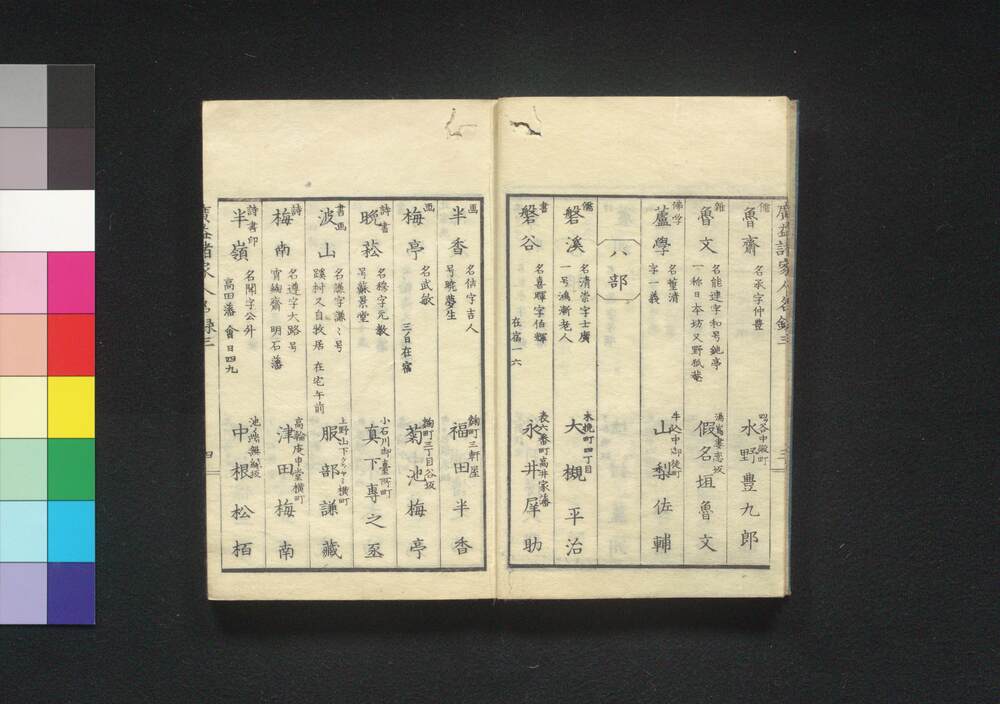 儒
魯齋
名承字仲豊
四谷中殿町
水野豊九郎
雑
魯文
名能連字和号鈍亭
一称日本坊又野狐菴
湯嶌妻恋坂
假名垣魯文
佛学
蘆學
名誓清
字一義
牛込中御徒町
山梨佐輔
八部
儒
磐溪
名清崇字士廣
一号鴻漸老人
木挽町四丁目
大槻平治
書
磐谷
名喜暉字伯輝
在宿一六
表六番町高井家藩
永井犀助
画
半香
名佶字吉人
号曉夢生
麹町三軒屋
福田半香
画
梅亭
名武敏
三自在宿
麹町三丁目谷坂
菊池梅亭
詩書
晩菘
名穆字元教
号蘇景堂
小石川御臺所町
真下專之丞
書画
波山
名謙字謙〻号
蹊村又自牧居
在宅午前
上野山下クラヤミ横町
服部謙藏
詩
梅南
名遵字大路号
宵綯齋
明石藩
高輪庚申堂横町
津田梅南
詩書印
半嶺
名聞字公外
高田藩
會日四九
池ノ端無縁坂
中根松栢
廣益諸家人名録三
四